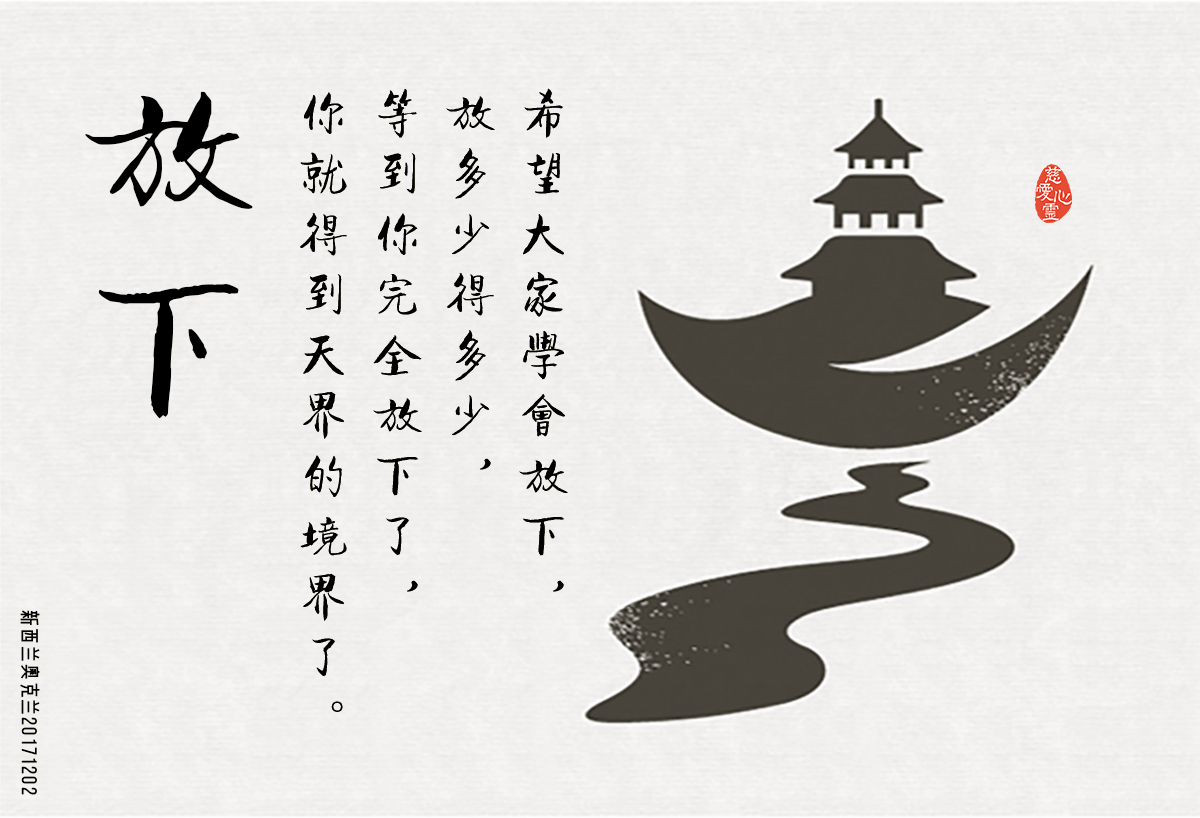 放下
希望大家學會放下，
放多少得多少，
等到你完全放下了，
你就得到天界的境界了。
慈愛心靈
新西兰奥克兰20171202